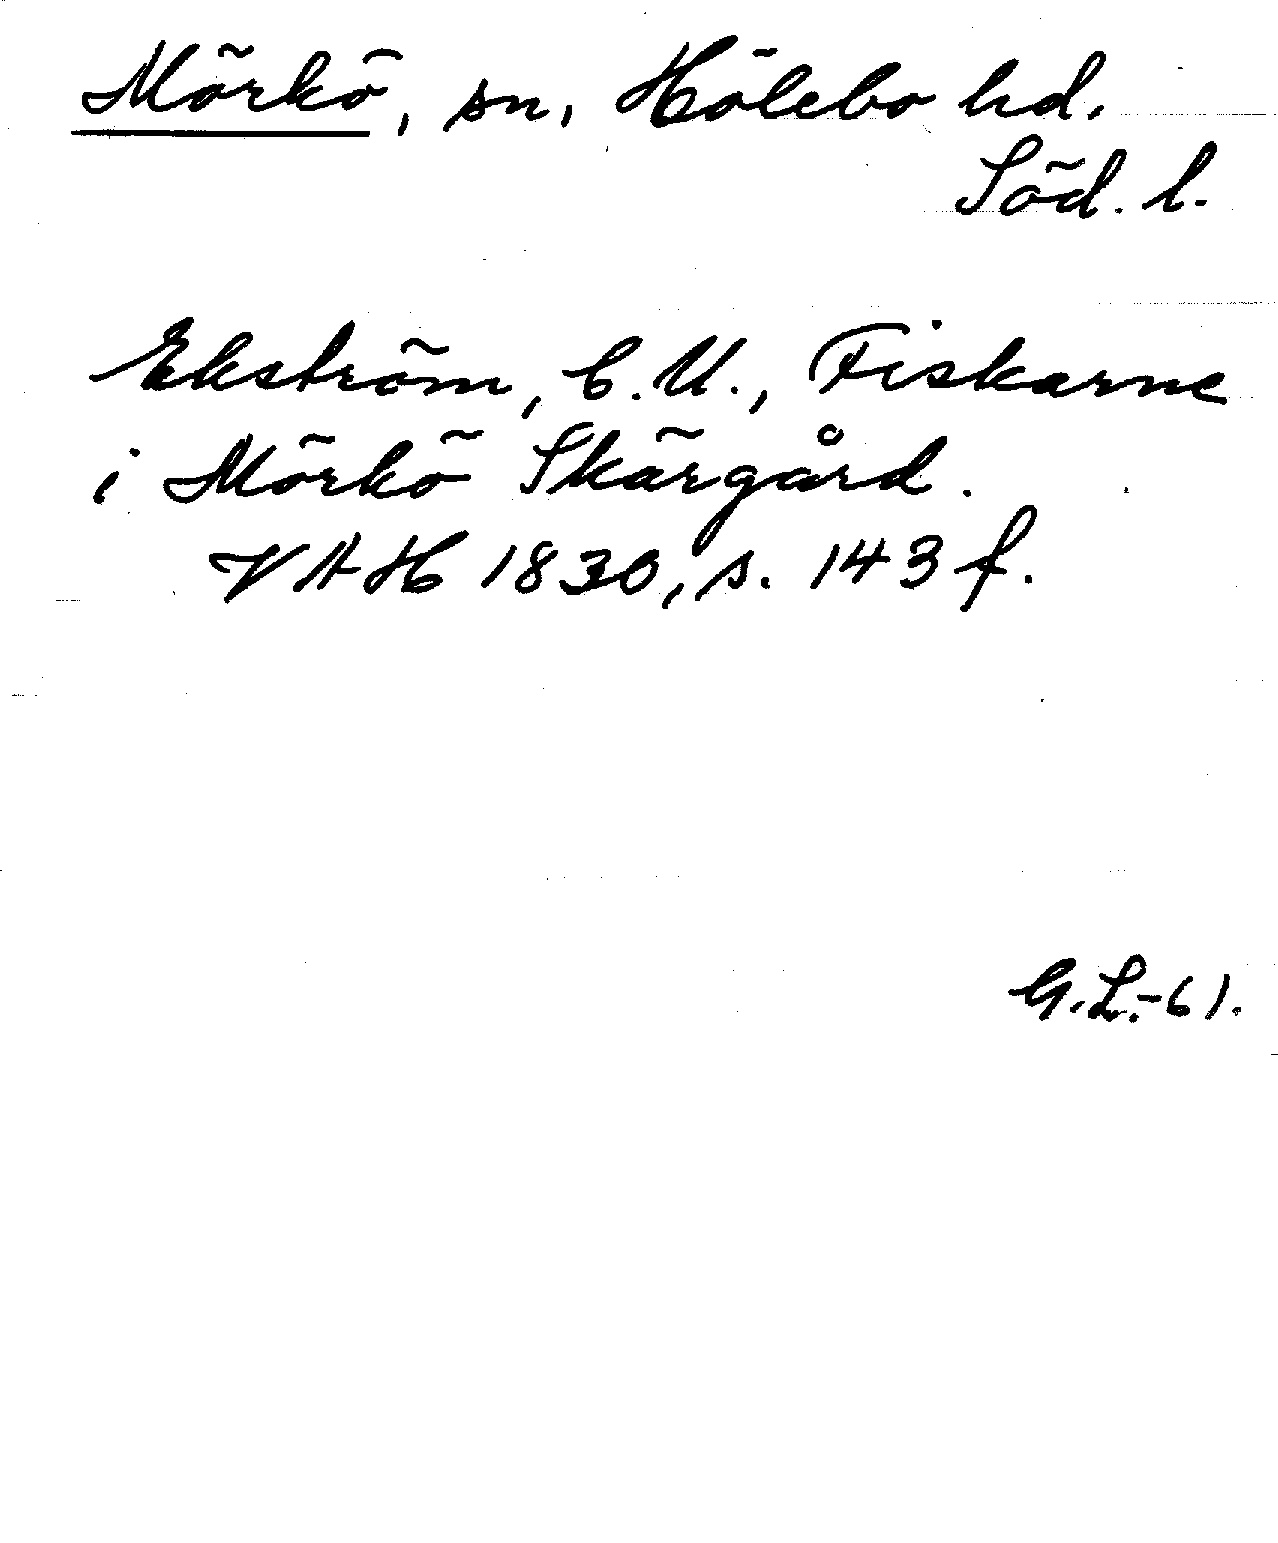 Mörkö, sn, Hölebo hd.
Söd. l.
Ekström, C.U., Fiskarne
i Mörkö Skärgård.
VAH 1830, s. 143 f.
G.L.-61.